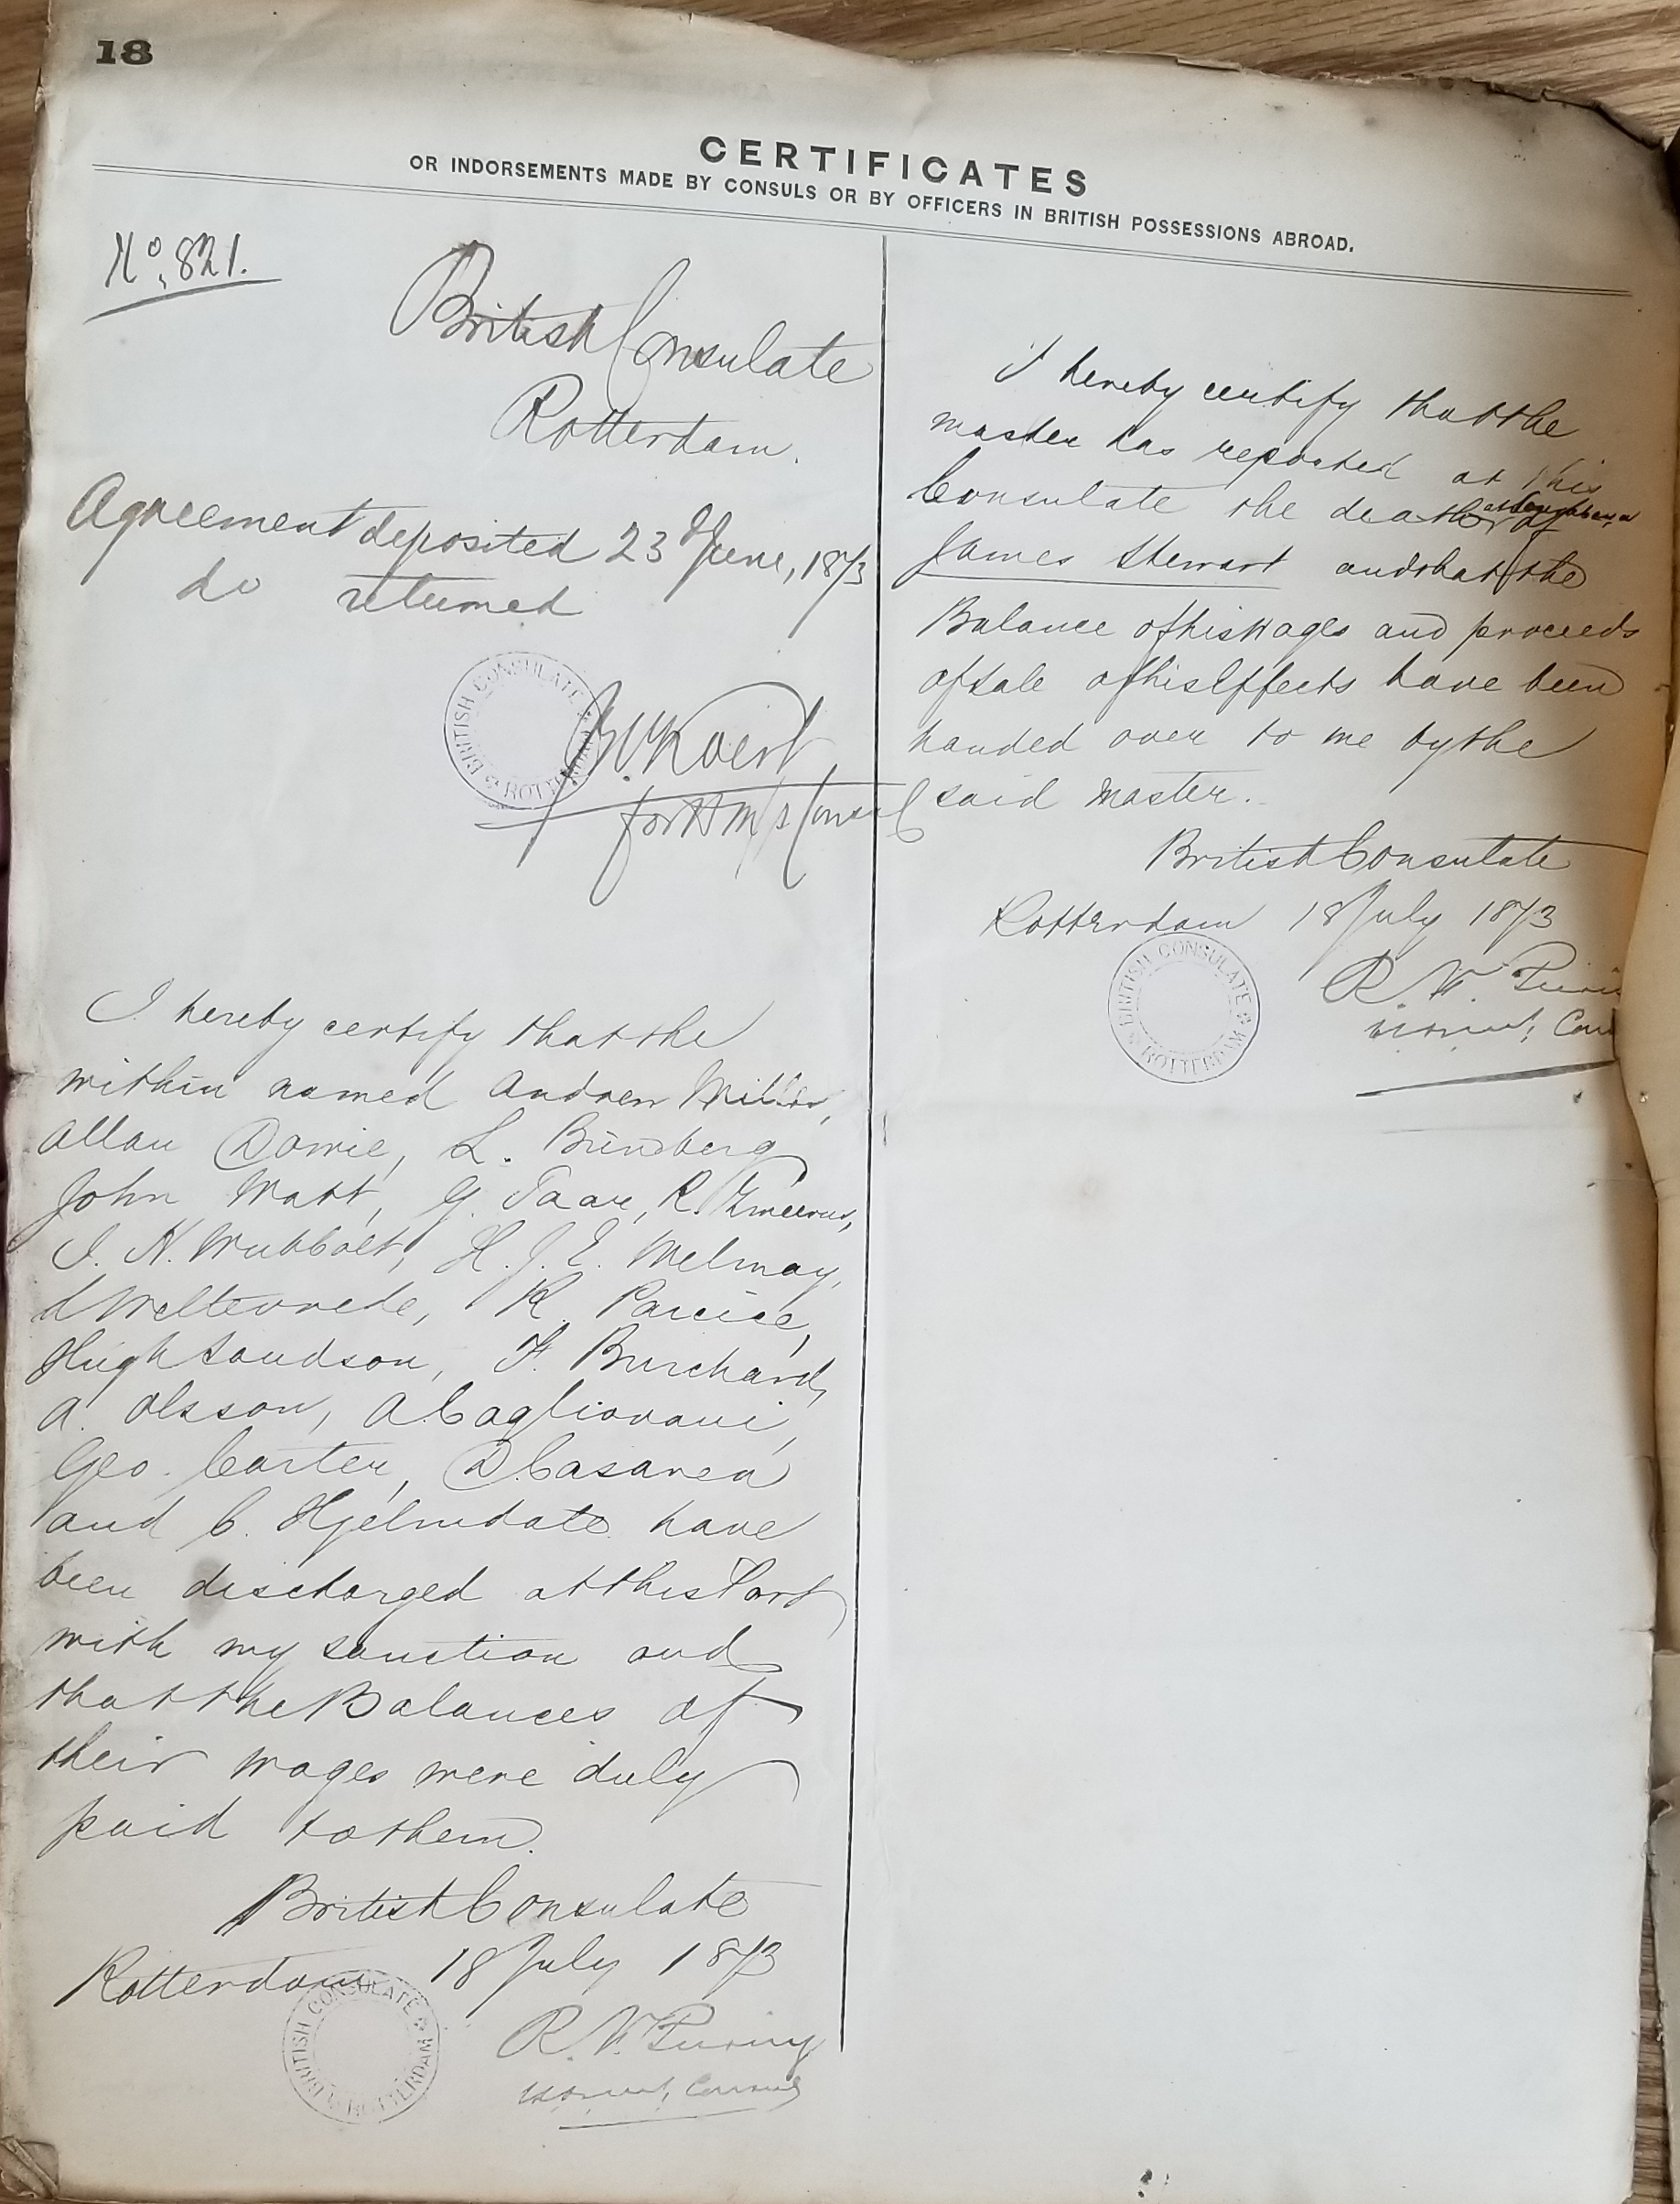 18
CERTIFICATES
OR INDORSEMENTS MADE BY CONSULS OR BY OFFICERS IN BRITISH POSSESSIONS ABROAD.
No. 821.
British Consulate
Rotterdam.
Agreement deposited 23d June, 1873
do returned
BRITISH CONSULATE ROTTERDAM
for H M's Consul
I hereby certify that the
within named Andrew Miller,
Allan Dowie, L. Bündberg
John Watt, G. Taar, R.
I. H. Wubbolt, H. J. E. Melmay,
d Weltevrede, K.
Hugh Sandson, F. Burchard,
A. Olsson, A Caglioroni,
Geo. Carter, D. Casanea
and C. Hjelmdate have
been discharged at this Port
with my sanction and
that the Balances of
their wages were duly
paid to them.
British Consulate
Rotterdam 18 July 1873
BRITISH CONSULATE ROTTERDAM
R. W. Turing
Consul
I hereby certify that the
master has reported at this
Consulate the death of
James Stewart and that the
Balance of his Wages and proceeds
of Sale of his Effects have been
handed over to me by the
said Master.
British Consulate
Rotterdam 18 July 1873
BRITISH CONSULATE ROTTERDAM
R. W.